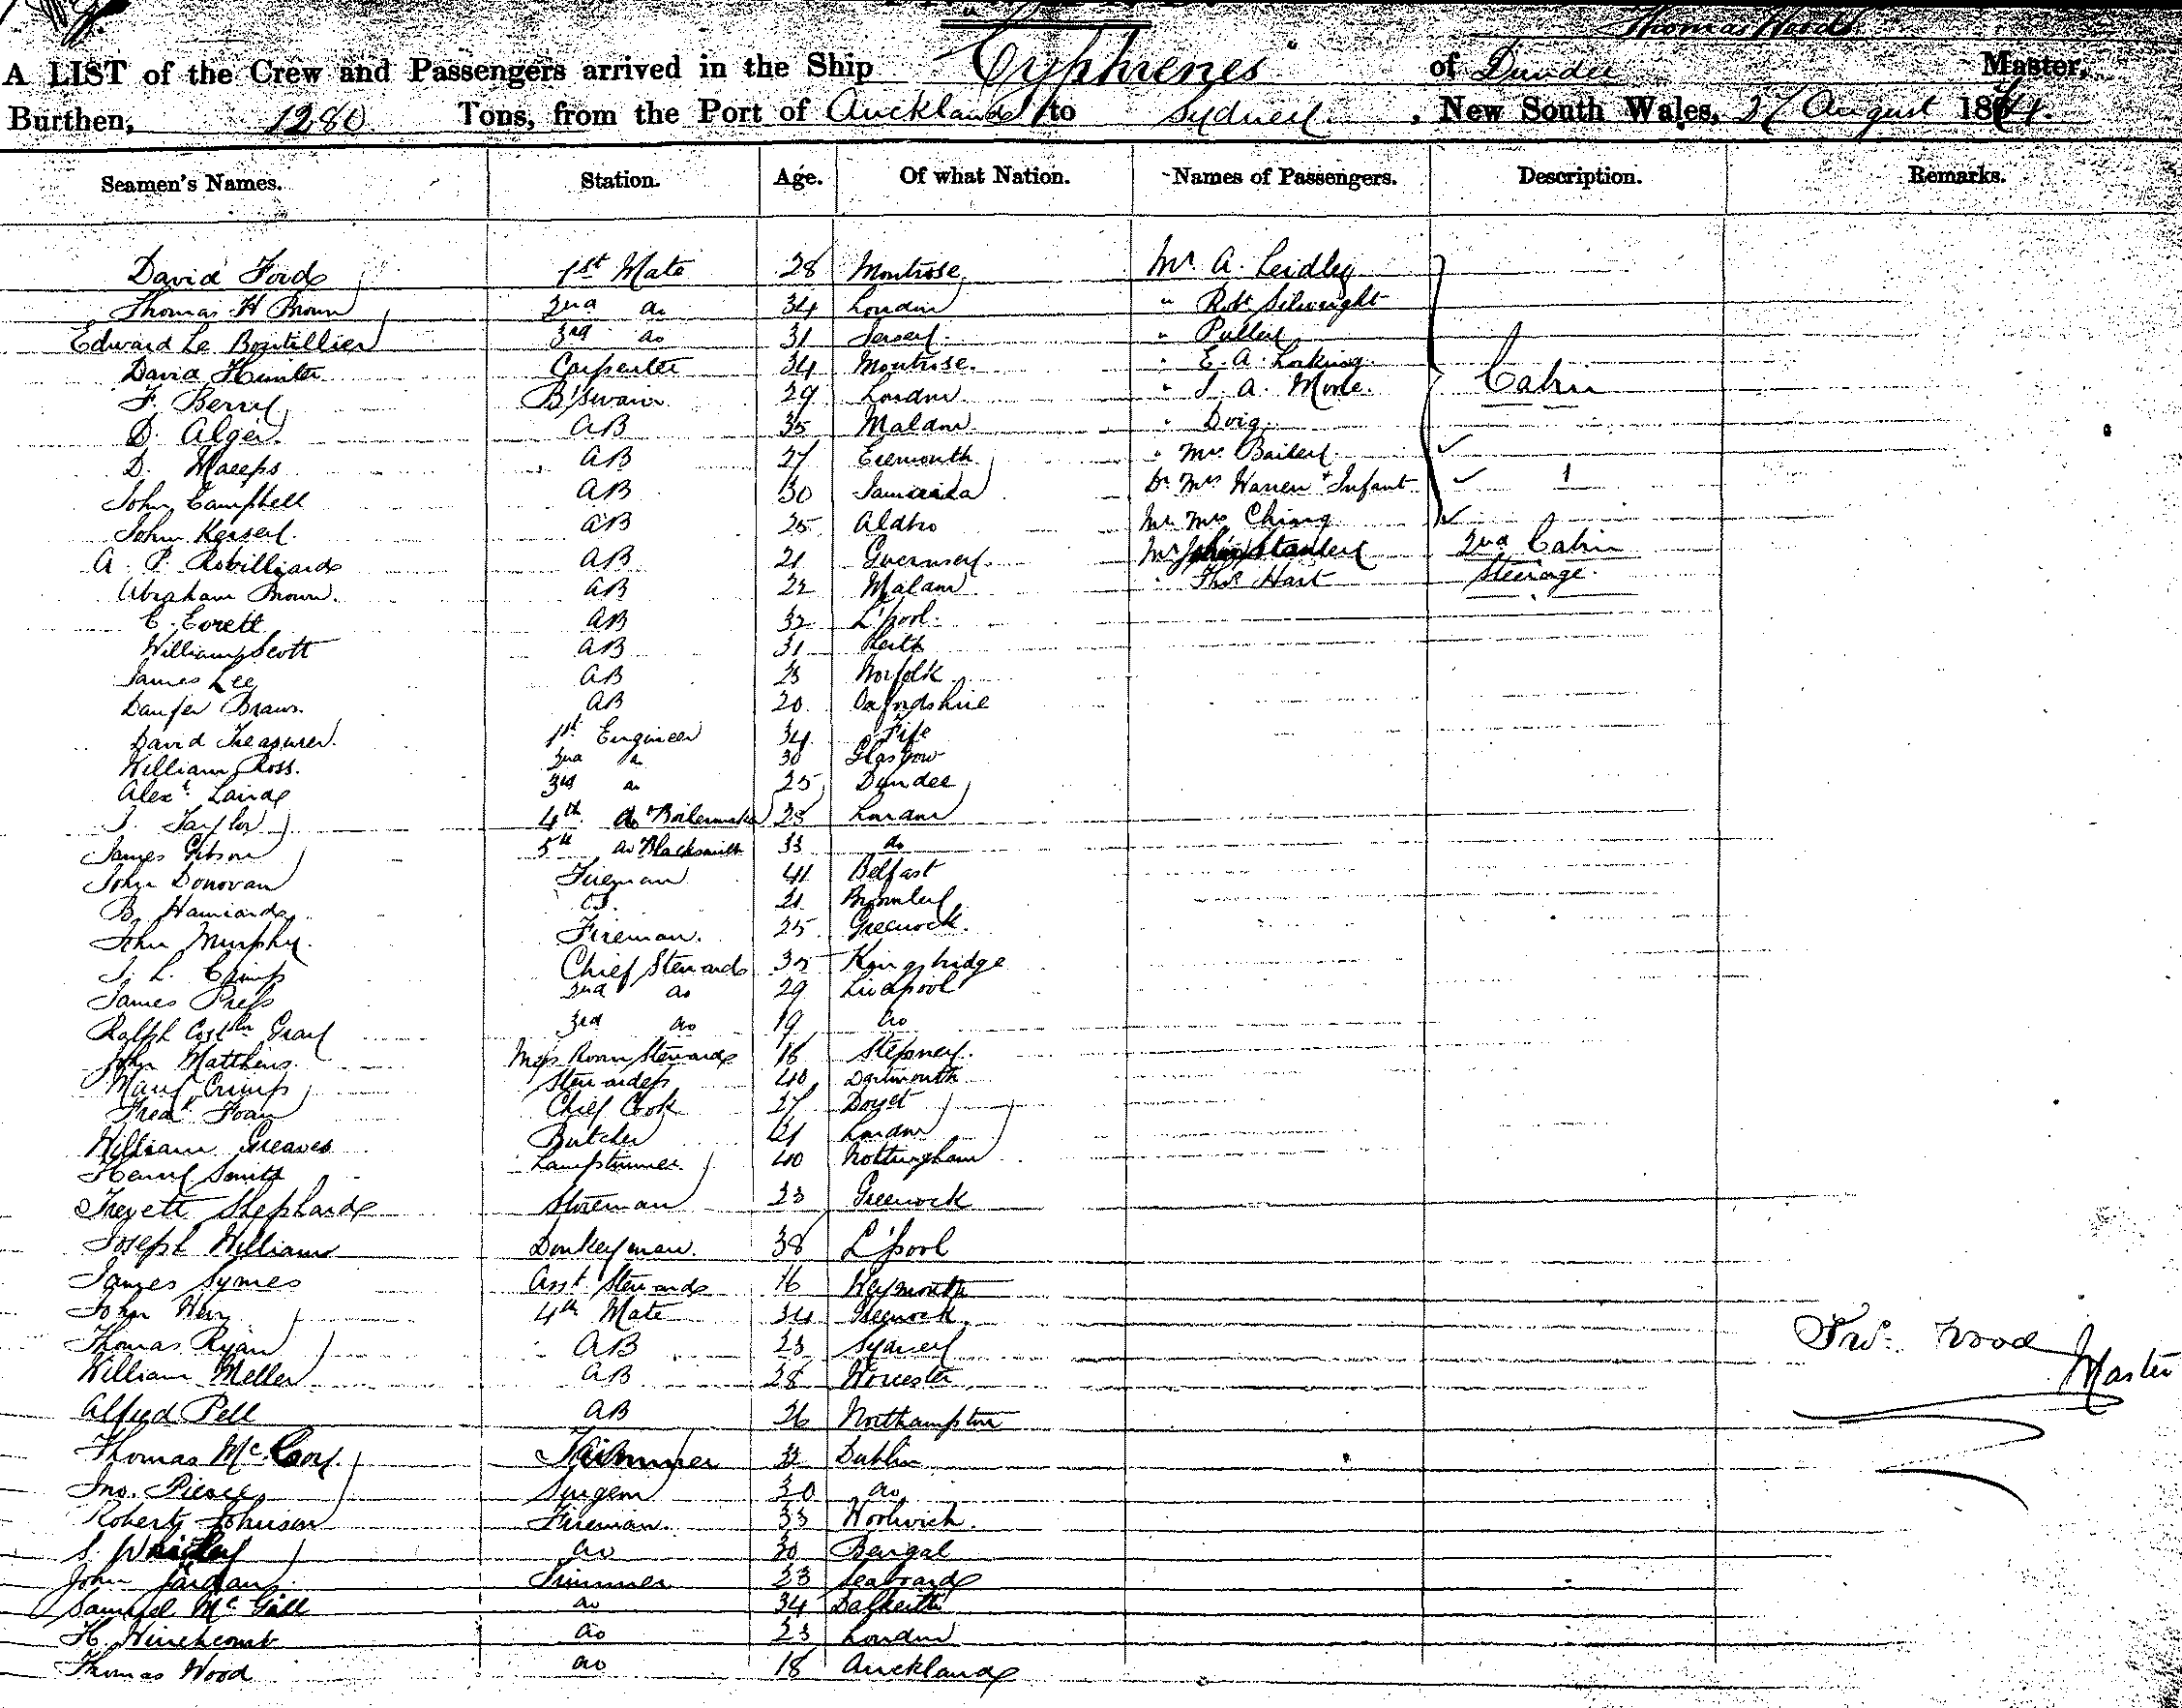 Thomas Wood
A LIST of the Crew and Passengers arrived in the Ship Cyphrenes of Dundee Master,
Burthen, 1280 Tons, from the Port of Auckland to Sydney, New South Wales, 27 August 1874.
Seamen's Names. Station. Age. Of what Nation. Names of Passengers. Description. Remarks.
David Ford 1st Mate 28 Montrose Mr A. Leidley
Thomas H Brown 2nd do 34 London " Robt Silwright
Edward Le Boutillier 3rd do 31 Jersey " Pulley
David Hunter Carpenter 34 Montrose. " E. A. Locking
F. Berry B'swain 29 London " A. Cabin
D. Alger. AB 35 Maldon " Doig
D. AB 27 Exmouth " Mrs Bailey
John Campbell AB 30 Jamaica Dr Mrs Warren & Infant 1
John Kersey. AB 25 Mr Mrs Ching
A. P. Robilliard AB 21 Guernsey. Mr Stanley 2nd Cabin
Abraham Brown. AB 22 " Thos Hart Steerage
C. Evrett AB 32 L'pool.
William Scott AB 31 Leith
James Lee AB 23 Norfolk
Braun. AB 20 Oxfordshire
David Treasurer. 1st Engineer 34 Fife
William Ross. 2nd do 30 Glasgow
Alexr Laird 3rd do 25 Dundee
J. Taylor 4th do & Boilermaker 28 London
James Gibson 5th do Blacksmith 33 do
John Donovan Fireman 41 Belfast
B. 21 Bromley
John Murphy. Fireman. 25 Greenock.
J. L. Crimp Chief Steward 35 Kingsbridge
James Press 2nd do 29 Liverpool
Ralph Gray 3rd do 19 do
John Matthews. Mess Room Steward 18 Stepney.
Mary Crimp Stewardess 40 Dartmouth
Fredk Foan Chief Cook 27 Dorset
William Greaves Butcher 21 London
Henry Smith Lamptrimmer 40 Nottingham
Trevett Shephard Storeman 23 Greenock
Joseph Williams Donkeyman. 38 L'pool
James Symes Asst Steward 16 Weymouth
John Weir 4th Mate 34 Greenock.
Thomas Ryan AB 23 Sydney
William Meller AB 28 Worcester
Alfred Pell AB 26 Northampton
Thomas McCoy. Trimmer 32 Dublin
Jno. Pierce Surgeon 30 do
Robert Johnson Fireman. 33 Woolwich.
S. do 30 Bengal
John Jardan Trimmer 23
Samuel McGill do 34 Dalkeith
H. Winchcomb do 23 London
Thomas Wood do 18 Auckland
Thos. Wood
Master